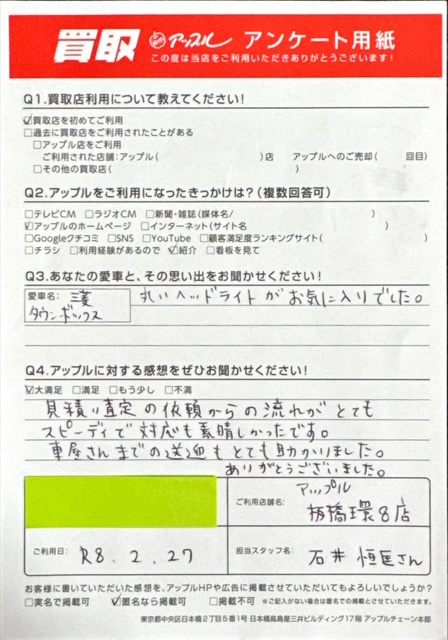 買取 アップル アンケート用紙
この度は当店をご利用いただきありがとうございます！
Q1.買取店利用について教えてください！
☑買取店を初めてご利用
□過去に買取店をご利用されたことがある
□アップル店をご利用
ご利用された店舗：アップル( )店 アップルへのご売却( 回目)
□その他の買取店( )
Q2.アップルをご利用になったきっかけは？(複数回答可)
□テレビCM □ラジオCM □新聞・雑誌(媒体名/ )
☑アップルのホームページ □インターネット(サイト名 )
□Googleクチコミ □SNS □YouTube □顧客満足度ランキングサイト( )
□チラシ □利用経験があるので ☑紹介 □看板を見て
Q3.あなたの愛車と、その思い出をお聞かせください！
愛車名： 三菱 タウンボックス
丸いヘッドライトがお気に入りでした。
Q4.アップルに対する感想をぜひお聞かせください！
☑大満足 □満足 □もう少し □不満
見積り査定の依頼からの流れがとても
スピーディで対応も素晴しかったです。
車屋さんまでの送迎もとても助かりました。
ありがとうございました。
ご利用店舗名： アップル 板橋環8店
ご利用日： R8.2.27
担当スタッフ名： 石井 恒匡さん
お客様に書いていただいた感想を、アップルHPや広告に掲載させていただいてもよろしいでしょうか？
□実名で掲載可 ☑匿名なら掲載可 □掲載不可 ※ご記入がない場合は匿名での掲載とさせていただきます。
東京都中央区日本橋2丁目5番1号 日本橋髙島屋三井ビルディング17階 アップルチェーン本部